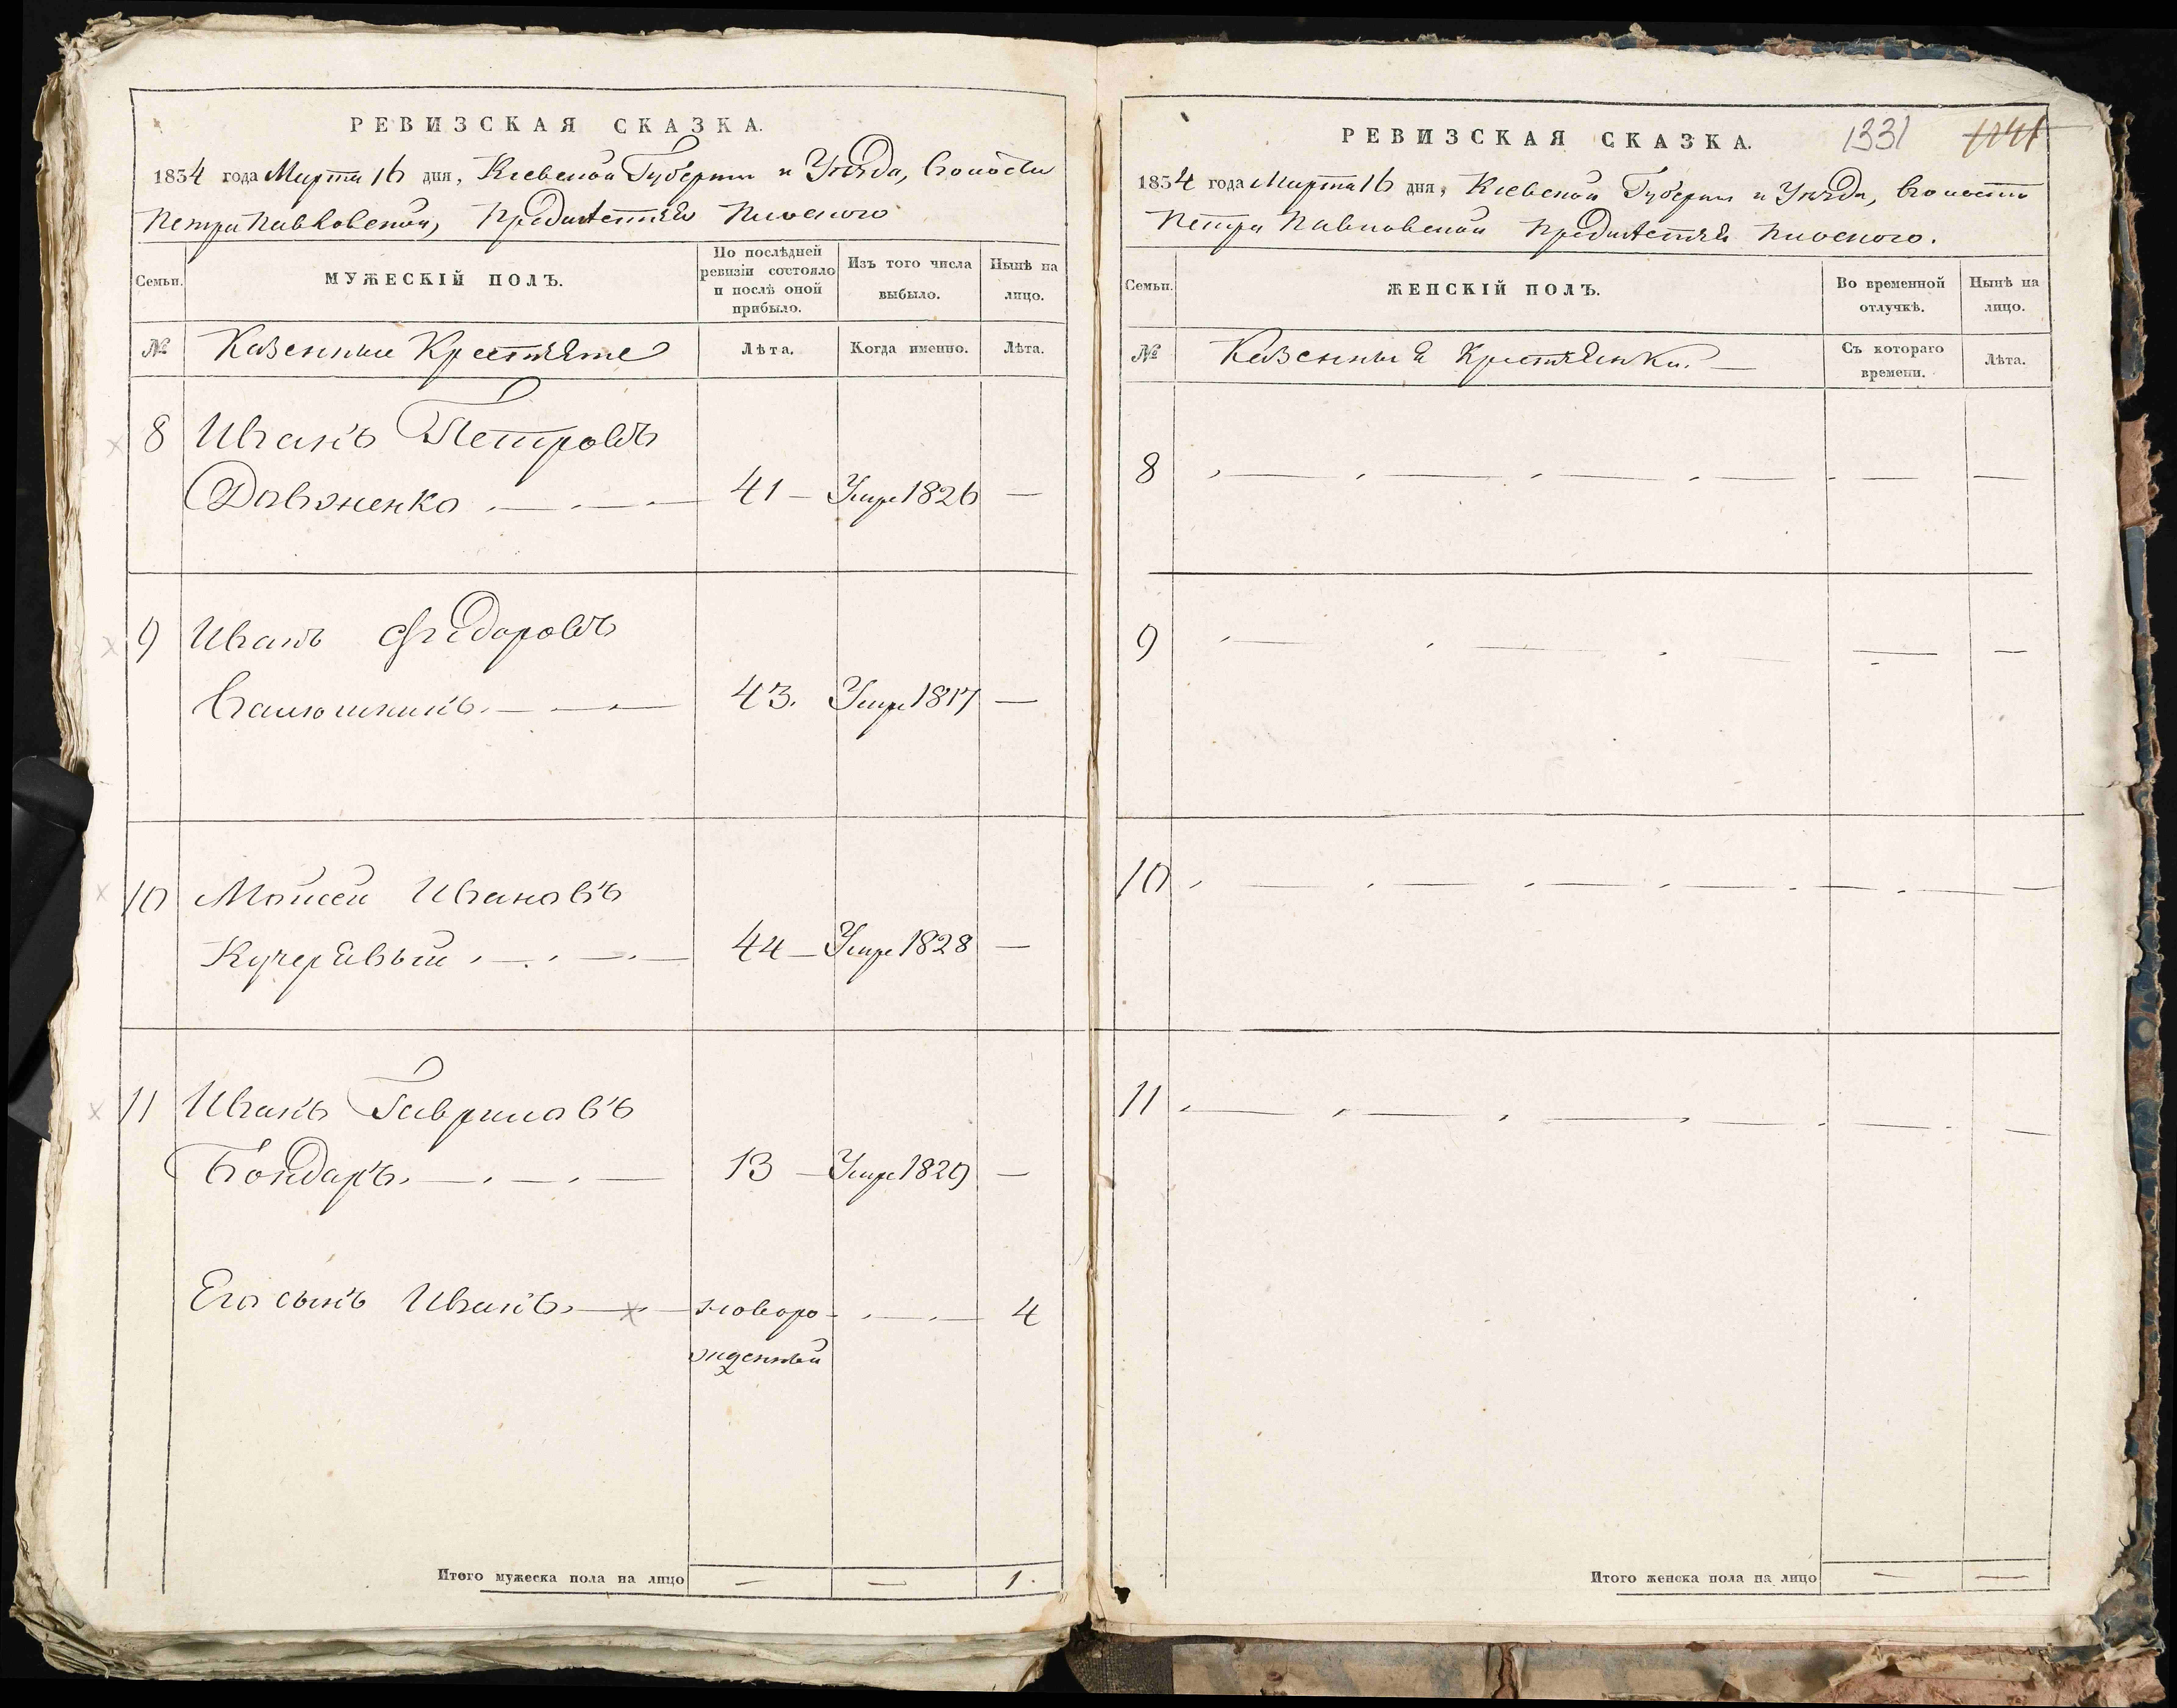 РЕВИЗСКАЯ СКАЗКА.
1834 года Марта 16 дня, Кіевской Губерніи и Уѣзда, Волости
Петро Павловской, Предмѣстья Плоского
Семьи.
МУЖЕСКІЙ ПОЛЪ.
По послѣдней ревизіи состояло и послѣ оной прибыло.
Изъ того числа выбыло.
Нынѣ на лицо.
№
Казенные Крестьяне
Лѣта.
Когда именно.
Лѣта.
8 Иванъ Петровъ
Довженко 41 — Умре 1826 —
9 Иванъ Федоровъ
43. Умре 1817 —
10 Моисей Ивановъ
Кучерявый 44 — Умре 1828 —
11 Иванъ Гавриловъ
Бондарь 13 — Умре 1829 —
Его сынъ Иванъ новоро- 4
жденный
Итого мужеска пола на лицо — — 1.
РЕВИЗСКАЯ СКАЗКА. 1331 1041
1834 года Марта 16 дня, Кіевской Губерніи и Уѣзда, Волости
Петро Павловской Предмѣстья Плоского.
Семьи.
ЖЕНСКІЙ ПОЛЪ.
Во временной отлучкѣ.
Нынѣ на лицо.
№
Казенныя Крестьянки.
Съ котораго времени.
Лѣта.
8
9
10
11
Итого женска пола на лицо — —